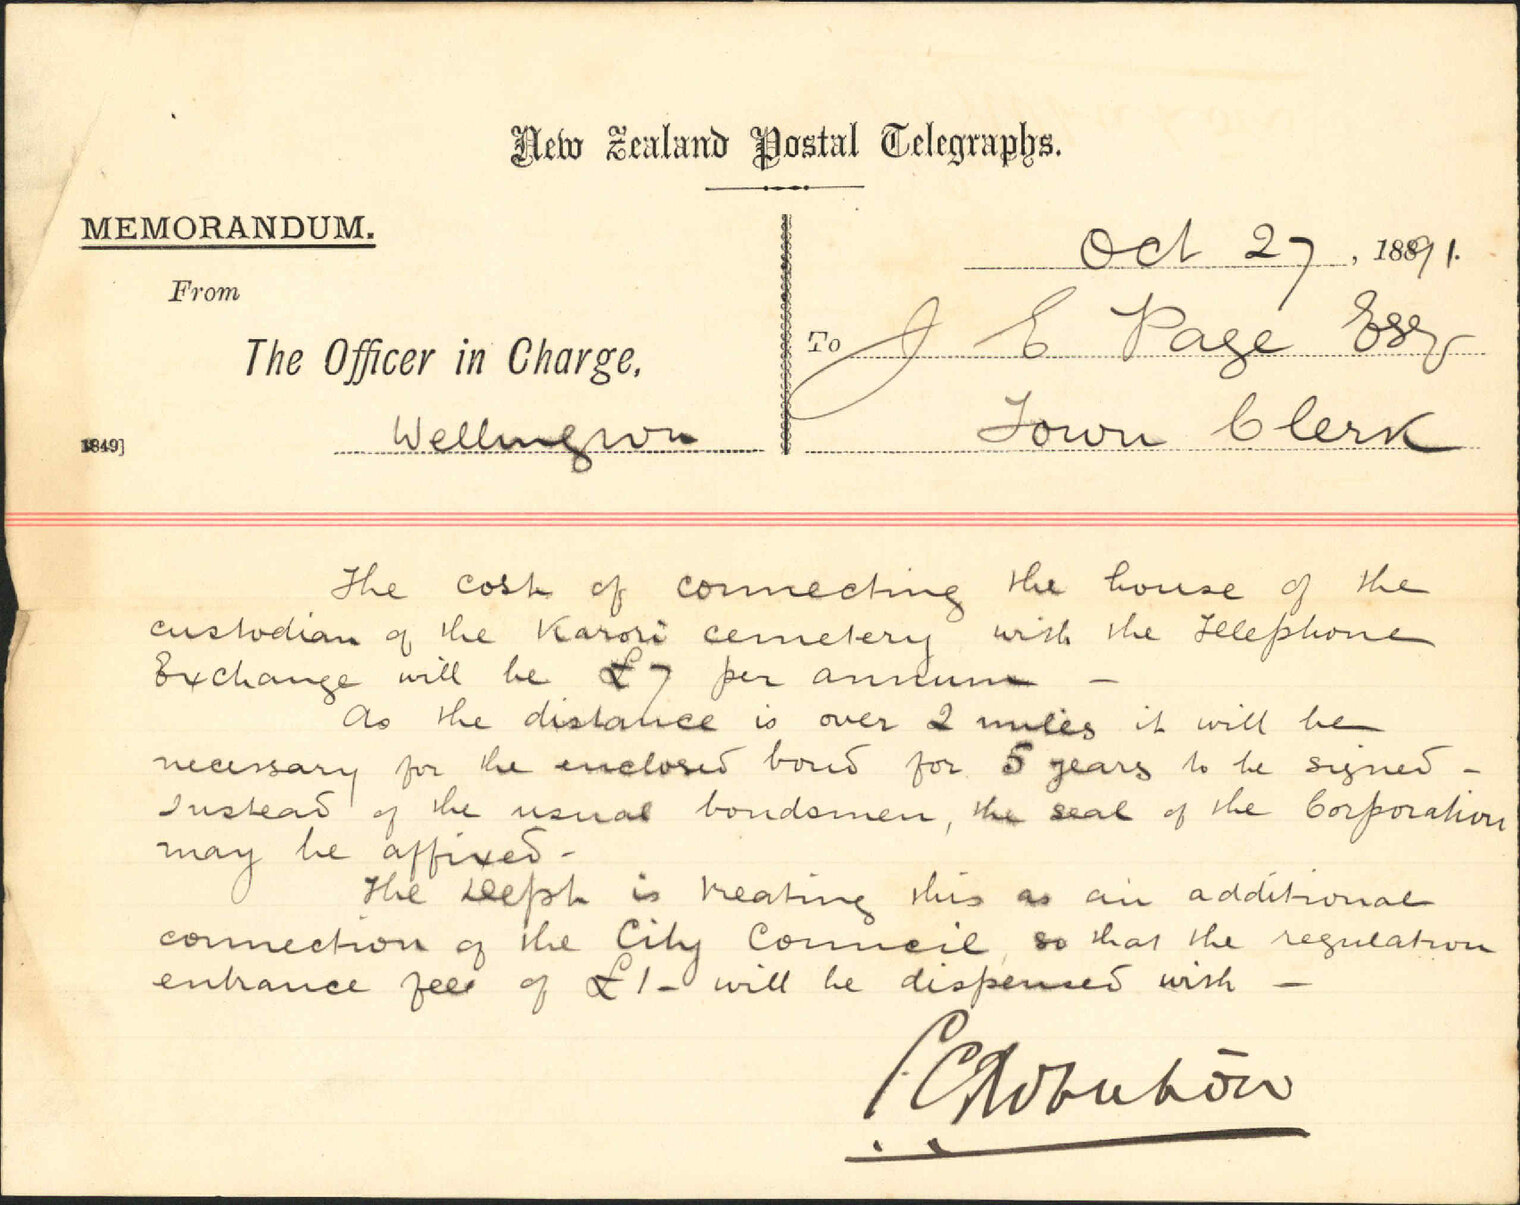 New Zealand Postal Telegraphs.
MEMORANDUM.
From
The Officer in Charge,
Wellington
1849]
Oct 27, 1891.
To J E Page Esq
Town Clerk
The cost of connecting the house of the
custodian of the Karori cemetery with the Telephone
Exchange will be £7 per annum —
As the distance is over 2 miles it will be
necessary for the enclosed bond for 5 years to be signed —
Instead of the usual bondsmen, the seal of the Corporation
may be affixed —
The Dept is treating this as an additional
connection of the City Council, so that the regulation
entrance fee of £1 — will be dispensed with —